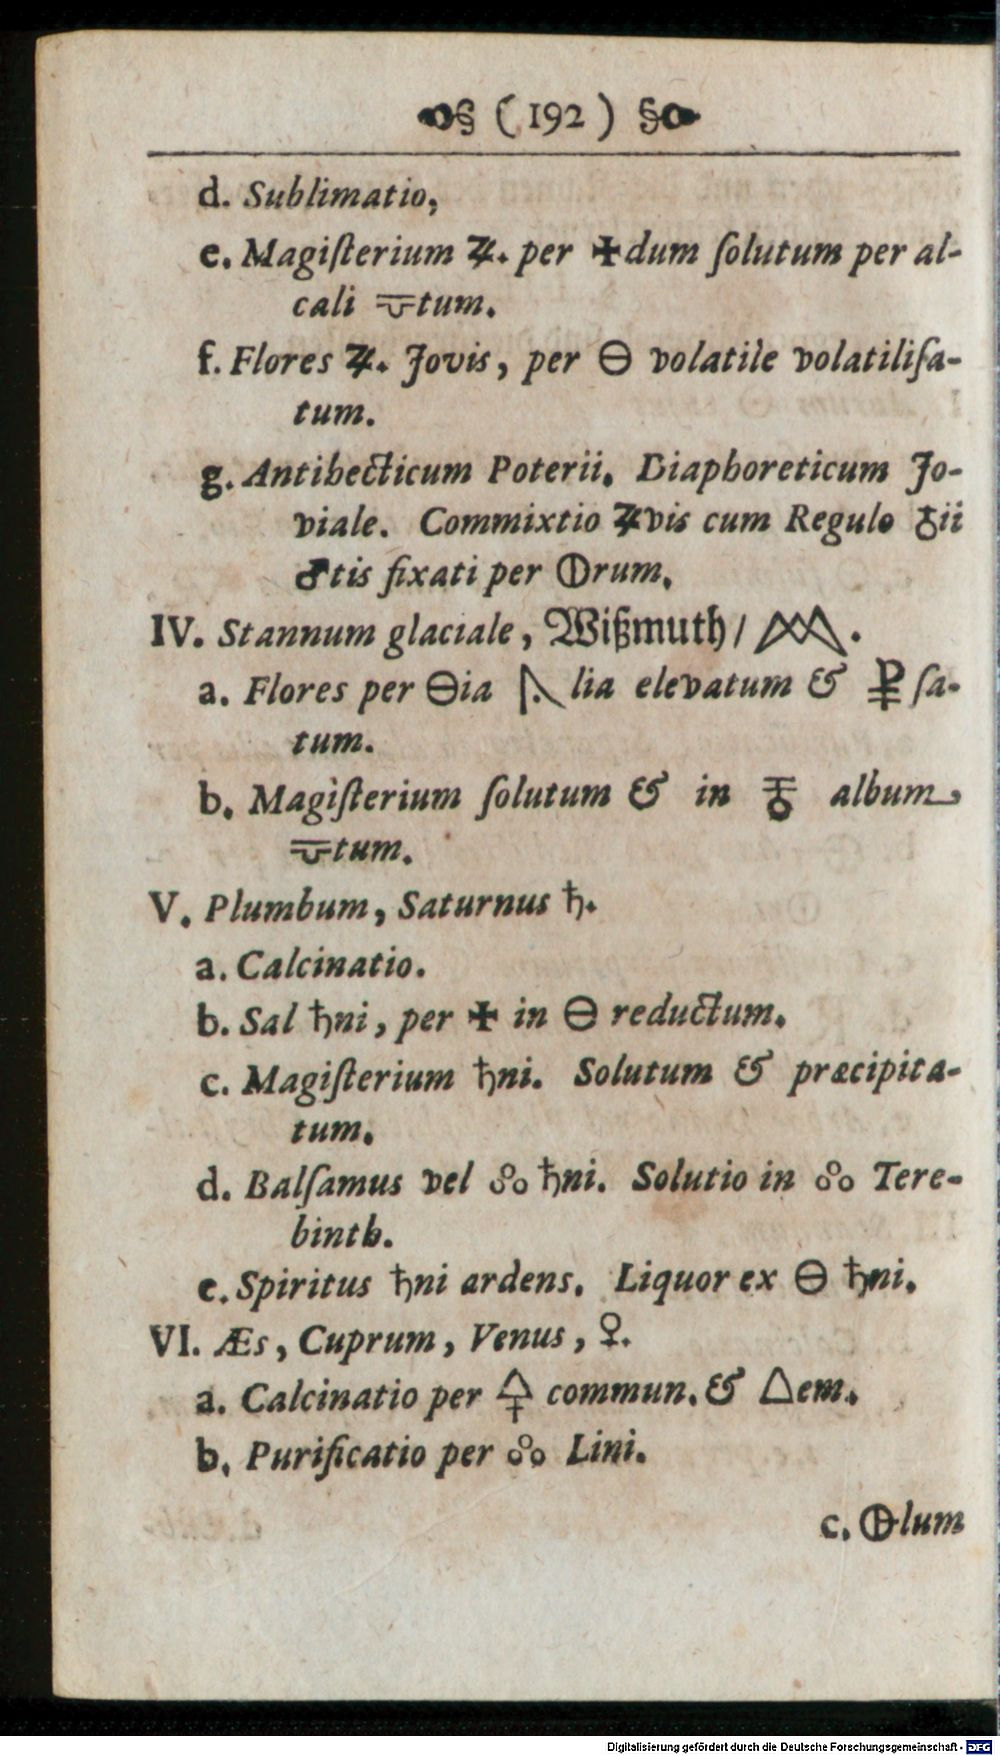 § ( 192 ) §
d. Sublimatio,
e. Magiſterium ♃. per ✠dum ſolutum per al-
cali 🜄tum.
f. Flores ♃. Jovis, per 🜔 volatile volatiliſa-
tum.
g. Antihecticum Poterii. Diaphoreticum Jo-
viale. Commixtio ♃vis cum Regulo ♁ii
♂tis fixati per 🜕rum.
IV. Stannum glaciale, Wißmuth /
a. Flores per 🜔ia lia elevatum & ſa-
tum.
b. Magiſterium ſolutum & in album
tum.
V. Plumbum, Saturnus ♄.
a. Calcinatio.
b. Sal ♄ni, per ✠ in 🜔 reductum.
c. Magiſterium ♄ni. Solutum & præcipita-
tum.
d. Balſamus vel 🝆 ♄ni. Solutio in 🝆 Tere-
binth.
e. Spiritus ♄ni ardens. Liquor ex 🜔 ♄ni.
VI. Æs, Cuprum, Venus, ♀.
a. Calcinatio per 🜍 commun. & 🜂em.
b. Purificatio per 🝆 Lini.
c. 🜖lum
Digitalisierung gefördert durch die Deutsche Forschungsgemeinschaft - DFG